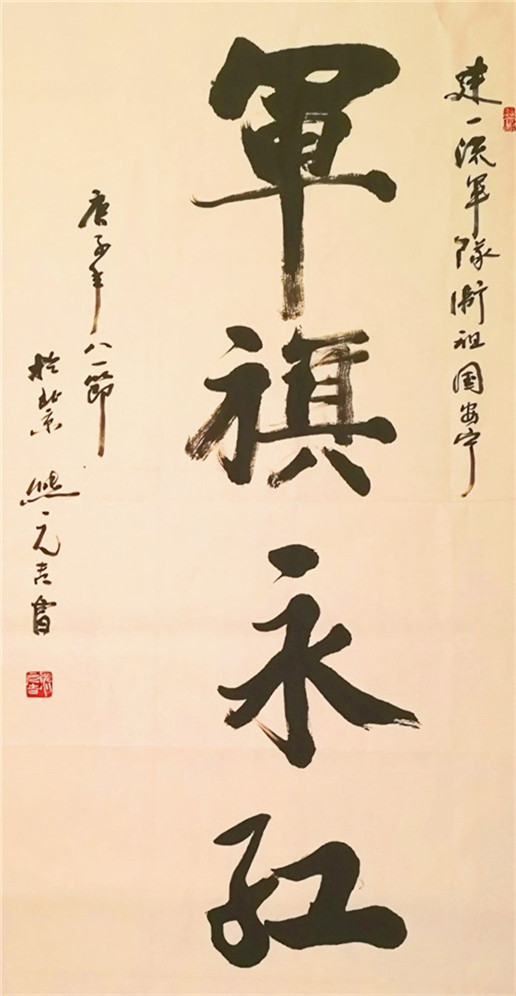 建一流军隊衛祖國安宁
軍旗永红
庚子年八一節
於北京 熊元吉書